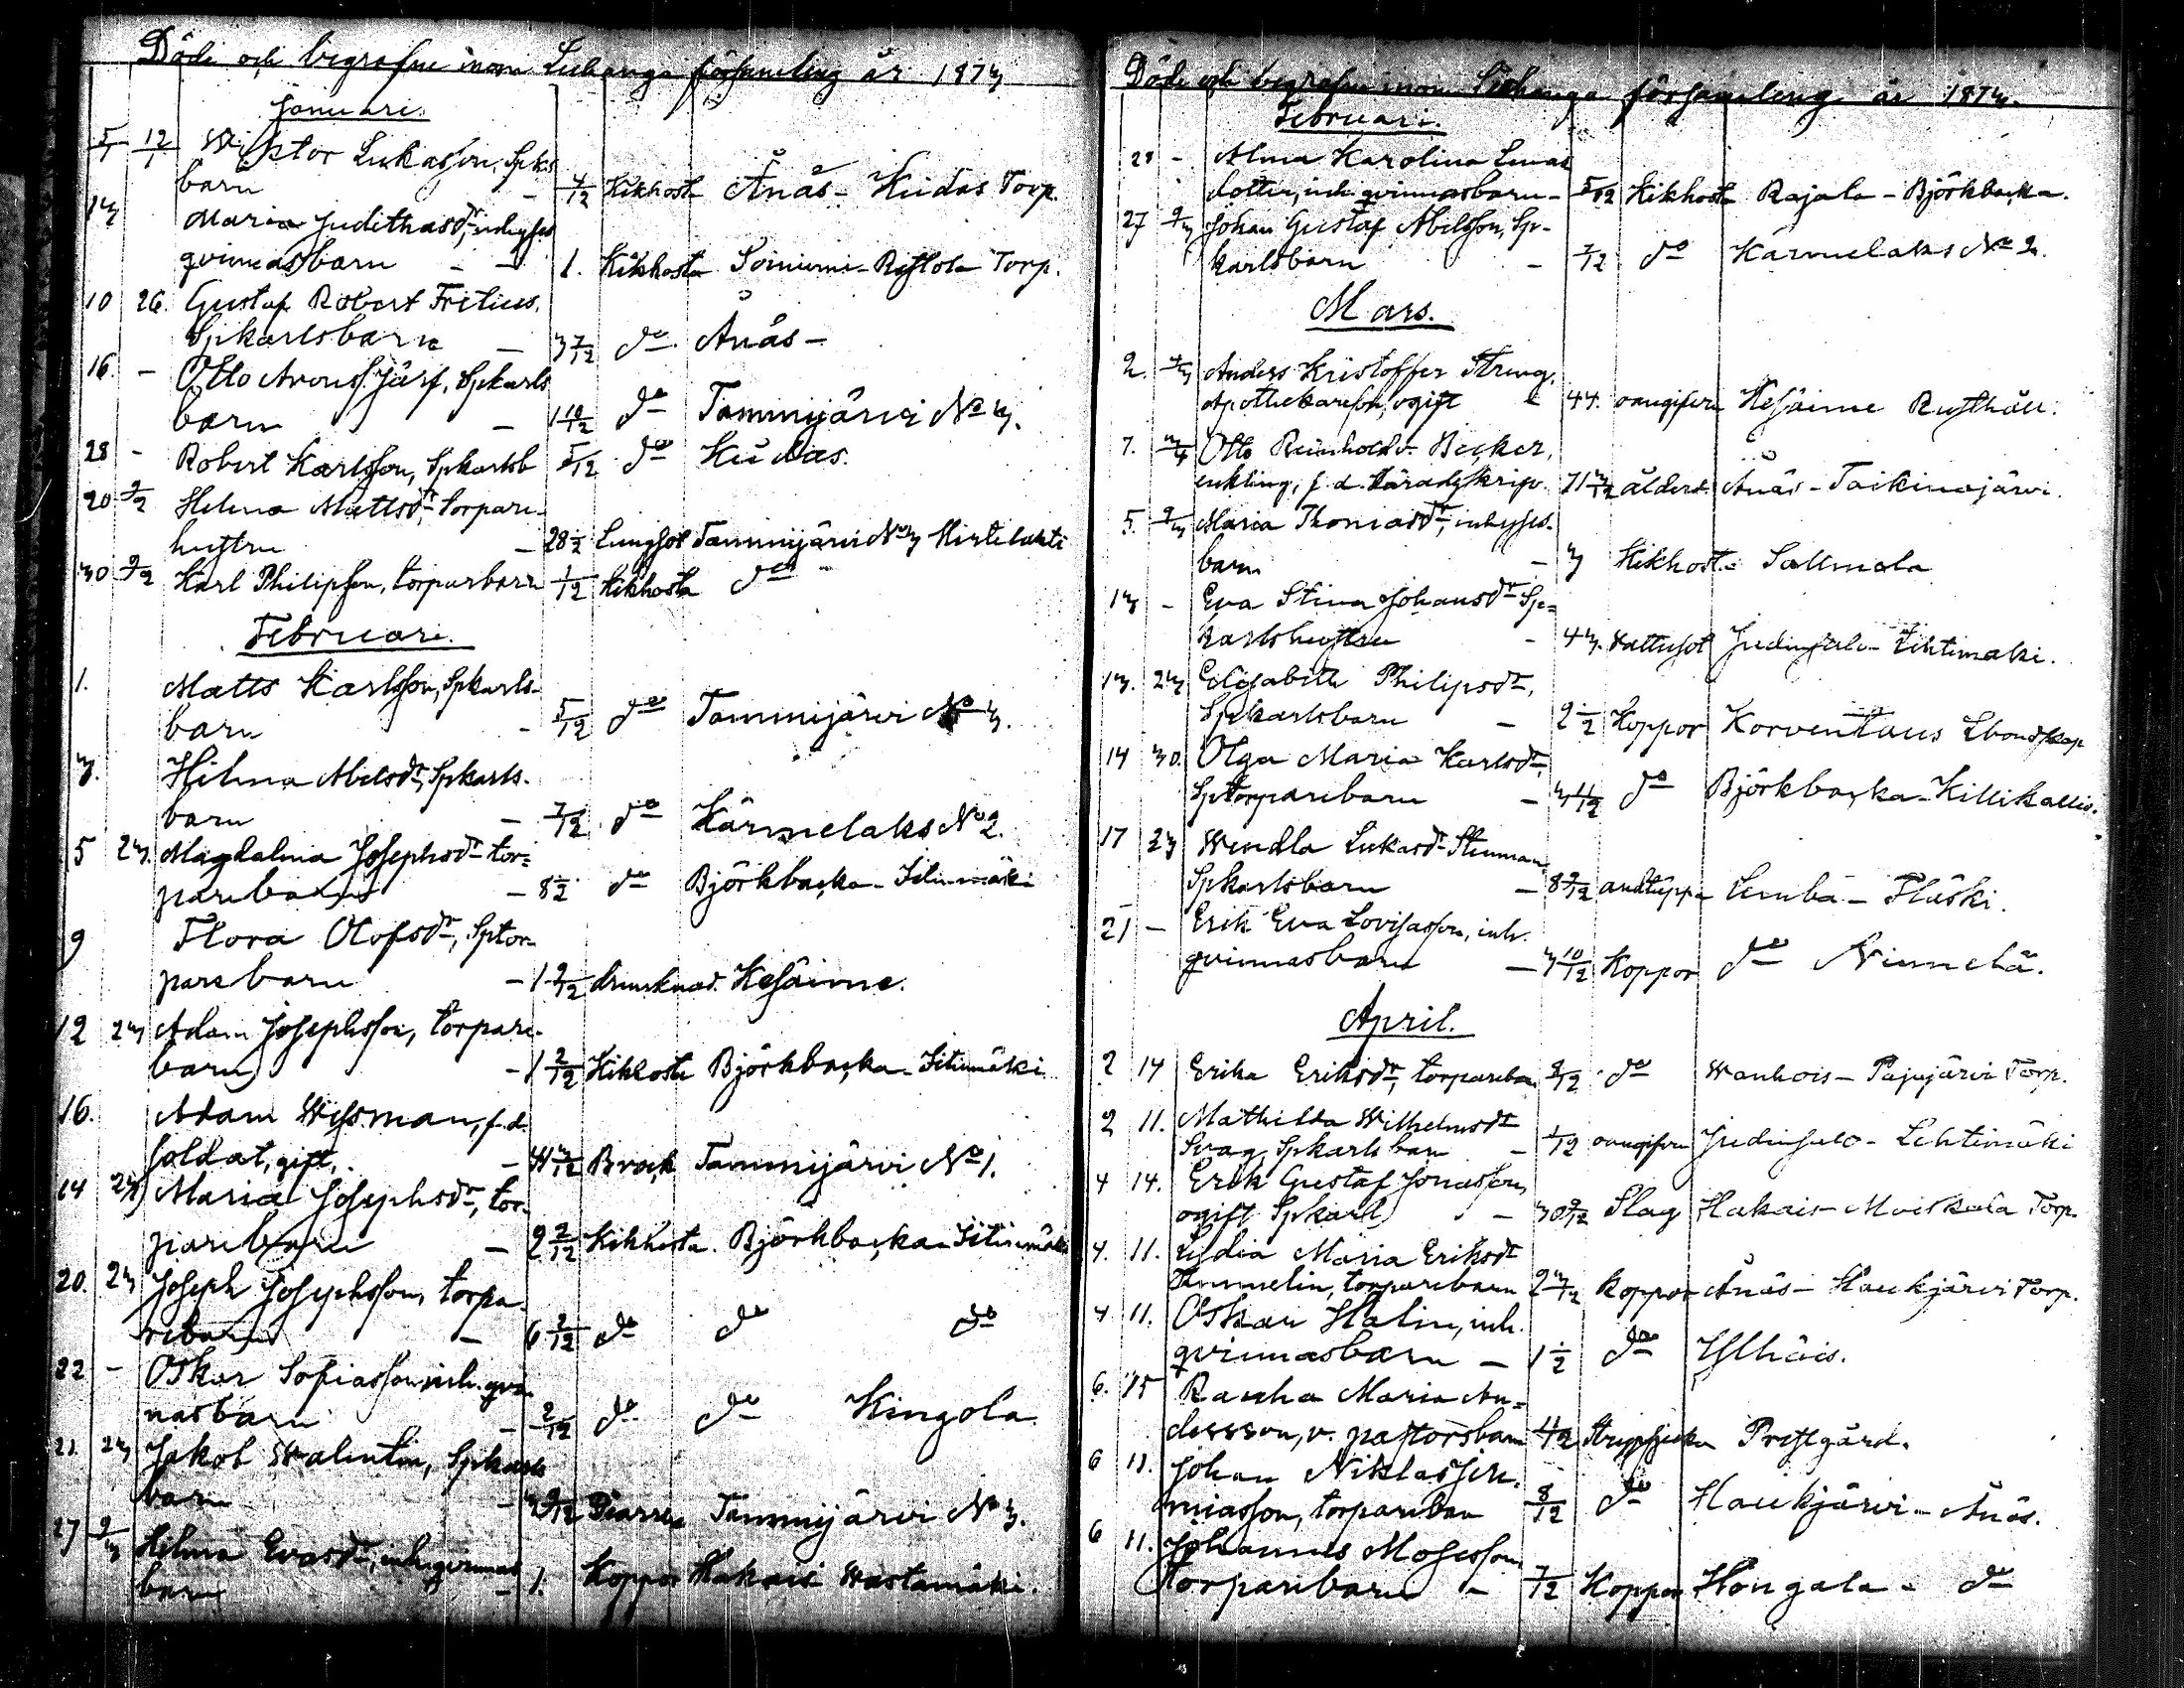 Döde och begrafne inom Luhanga församling år 1873
Januari.
5/1 12/1 Wiktor Lukasson, Spks
barn - 4/12 Kikhosta Ånäs - Hiidas Torp.
13 Maria Judithasdr, inhyses
qvinnasbarn - - 1. Kikhosta Soiniemi - Torp.
10 26. Gustaf Robert Fretius,
Spkarlsbarn - 3 7/12 do Ånäs -
16. - Otto Aronss. Järf, Spkarls
barn - 1 10/12 do Tammijärvi No 3.
28 - Robert Karlsson, Spkarlsb 5/12 do
20 2/2 Helena Mattsdr, Torpare-
hustru - 28 1/2 Lungsot Tammijärvi No 3
30 2/2 Karl Philipsson, torparbarn 1/12 Kikhosta do
Februari.
1. Matts Karlsson, Spkarls-
barn - 5/12 do Tammijärvi No 3.
3. Hilma Abelsdr, Spkarls-
barn - 7/12 do Kärmelaks No 2.
5 23. Magdalena Josephsdr tor-
parebarn - 8 1/2 do Björkbacka - Iitinmäki
9 Flora Olofsdr, Sptor-
parebarn - 1 2/12 Kesäime.
12 23 Adam Josephsson, torpare-
barn - 1 2/12 Kikhosta Björkbacka - Iitinmäki
16. Adam Wissman, f.d.
soldat, gift, - Brack Tammijärvi No 1.
14 23 Maria Josephsdr, tor-
parebarn - 2 2/12 Kikhosta. Björkbacka - Iitinmäki
20. 23 Joseph Josephsson, torpa-
rebarn - 6 2/12 do do do
22 - Oskar Sofiasson, inh. qvin-
nasbarn - 2/12 do do Kingola
21. 23 Jakob Walentin, Spkarls
barn - Tammijärvi No 3.
27 2/3 Hilma Evasdr, inh. qvinnas
barn - 1. Koppor Hakais Wastamäki.
Döde och begrafne inom Luhanga församling år 1873.
Februari.
28 - Alma Karolina
dotter, inh qvinnasbarn - 5/12 Kikhosta Rajala - Björkbacka.
27 2/3 Johan Gustaf Abelsson, Sp-
karlsbarn - 7/12 do Kärmelaks No 2.
Mars.
2. Anders Kristoffer Streng,
apothekareson, ogift - 44. oangifven Kesäime Rusthåll.
7. Otto Reinhold v. Becker,
enkling, f.d. Häradsskrifv. ålderd. Ånäs - Taikinajärvi.
5. 2/3 Maria Thomasdr, inhyses-
barn - 3 Kikhost. Sallmela
13 - Eva Stina Johansdr Sp-
karlshustru - 43. Vattusot Judinsalo - Lehtimäki.
13. 23 Elisabeth Philipsdr,
Spkarlsbarn - 2 1/2 Koppor Korventaus
14 30. Olga Maria Karlsdr,
Sptorparebarn - 3 11/12 do Björkbacka - Killikallis.
17 23 Wendla Lukasdr Stenman
Spkarlsbarn - andtäppa -
21 - Erik Eva Lovisasson, inh.
qvinnasbarn - 3 10/12 Koppor do
April.
2 14 Erika Eriksdr, torparebarn do Wanhois - Pajujärvi Torp.
2 11. Mathilda Wilhelmsdr
Svag, Spkarlsbarn - 1/12 oangifven Judinsalo - Lehtimäki
4 14. Erik Gustaf Jonasson,
ogift Spkarl - Slag Hakais - Torp.
4. 11. Lydia Maria Eriksdr
Tammelin, torparebarn 2 3/12 koppor Ånäs - Haukjärvi Torp.
4 11. Oskar Halin, inh.
qvinnasbarn - 1 1/2 do
6. 15 Rauha Maria An-
dersson, v. pastorsbarn 4/12 Strypsjuka Prestgård.
6 11. Johan Niklas Jere-
miasson, torparebarn 8/12 do Haukjärvi - Ånäs.
6 11. Johannes Mosesson
Torparebarn - 7/12 Koppor Hongala - do